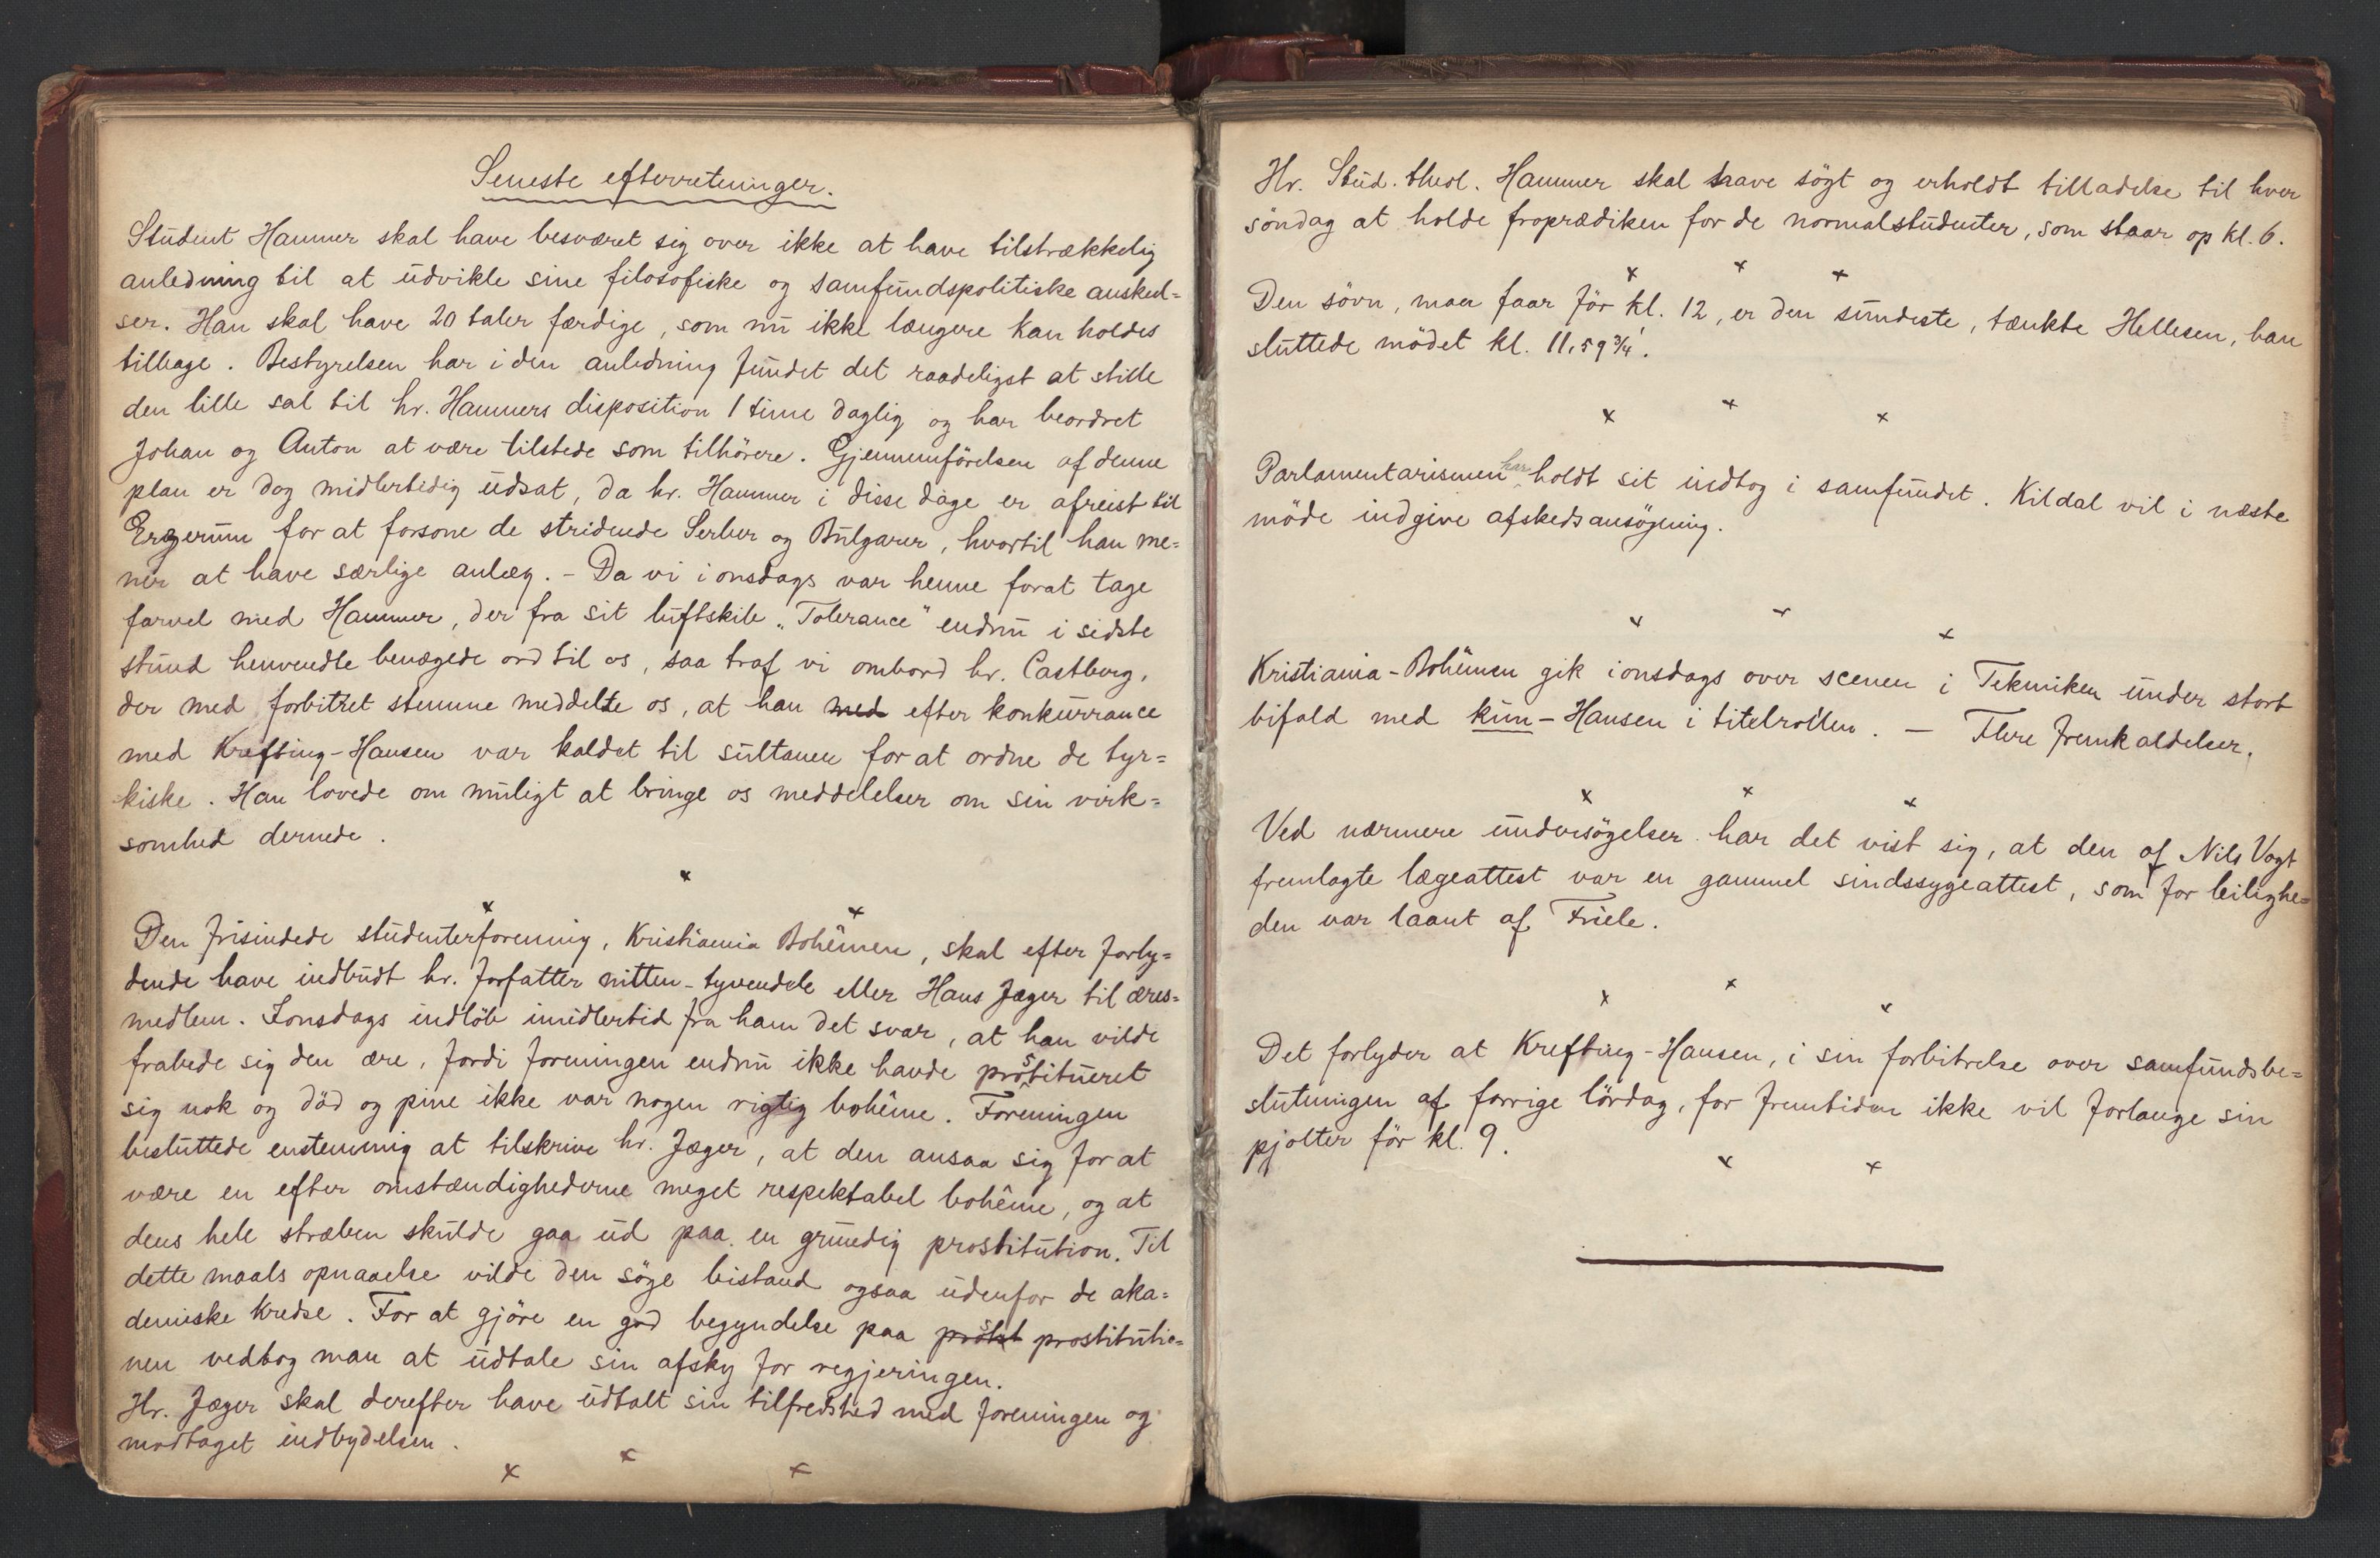 Seneste efterretninger.
Student Hammer skal have besværet sig over ikke at have tilstrækkelig
anledning til at udvikle sine filosofiske og samfundspolitiske anskuel=
ser. Han skal have 20 taler færdige, som nu ikke længere kan holdes
tilbage. Bestyrelsen har i den anledning fundet det raadeligst at stille
den lille sal til hr. Hammers disposition 1 time daglig og har beordret
Johan og Anton at være tilstede som tilhörere. Gjennemförelsen af denne
plan er dog midlertidig udsat, da hr. Hammer i disse dage er afreist til
Erzerum for at forsone de stridende Serber og Bulgarer, hvortil han me=
ner at have særlige anlæg. - Da vi i onsdags var henne forat tage
farvel med Hammer, der fra sit luftskib „Tolerance" endnu i sidste
stund henvendte bevægede ord til os, saa traf vi ombord hr. Castberg,
der med forbitret stemme meddelte os, at han med efter konkurrance
med Krefting-Hansen var kaldet til sultanen for at ordne de tyr=
kiske. Han lovede om muligt at bringe os meddelelser om sin virk=
somhed dernede.
x x x
Den frisindede studenterforening, Kristiania Bohêmen, skal efter forly=
dende have indbudt hr. forfatter nitten-tyvendele eller Hans Jæger til æres=
medlem. Ionsdags indløb imidlertid fra ham det svar, at han vilde
frabede sig den ære, fordi foreningen endnu ikke havde prostitueret
sig nok og död og pine ikke var nogen rigtig bohême. Foreningen
besluttede enstemmig at tilskrive hr. Jæger, at den ansaa sig for at
være en efter omstændighederne meget respektabel bohême, og at
dens hele stræben skulde gaa ud paa en grundig prostitution. Til
dette maals opnaaelse vilde den söge bistand ogsaa udenfor de aka=
demiske kredse. For at gjöre en god begyndelse paa prostitutio=
nen vedtog man at udtale sin afsky for regjeringen.
Hr. Jæger skal derefter have udtalt sin tilfredshed med foreningen og
modtaget indbydelsen.
x x x
Hr. Stud. theol. Hammer skal have sögt og erholdt tilladelse til hver
söndag at holde froprædiken for de normalstudenter, som staar op kl. 6.
x x x
Den sövn, man faar för kl. 12, er den sundeste, tænkte Hellesen, han
sluttede mödet kl. 11,59 3/4'.
x x x
Parlamentarismen har holdt sit indtog i samfundet. Kildal vil i næste
möde indgive afskedsansögning.
x x x
Kristiania-Bohêmen gik ionsdags over scenen i Tekniken under stort
bifald med kun-Hansen i titelrollen. — Flere fremkaldelser.
x x x
Ved nærmere undersögelser har det vist sig, at den af Nils Vogt
fremlagte lægeattest var en gammel sindssygeattest, som for leilighe=
den var laant af Friele.
x x x
Det forlyder at Krefting-Hansen, i sin forbitrelse over samfundsbe=
slutningen af forrige lördag, for fremtiden ikke vil forlange sin
pjolter för kl. 9.
x x